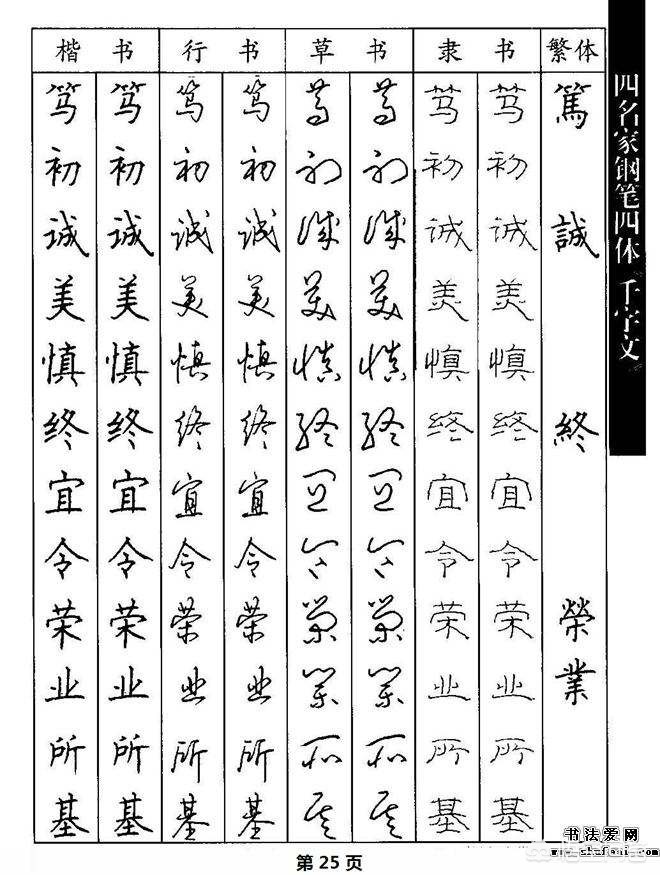 楷书 行书 草书 隶书 繁体
笃 笃 笃 笃 笃 笃 笃 笃 篤
初 初 初 初 初 初 初 初
诚 诚 诚 诚 诚 诚 诚 诚 誠
美 美 美 美 美 美 美 美
慎 慎 慎 慎 慎 慎 慎 慎
终 终 终 终 终 终 终 终 終
宜 宜 宜 宜 宜 宜 宜 宜
令 令 令 令 令 令 令 令
荣 荣 荣 荣 荣 荣 荣 荣 榮
业 业 业 业 业 业 业 业 業
所 所 所 所 所 所 所 所
基 基 基 基 基 基 基 基
四名家钢笔四体 千字文
书法爱网
第 25 页